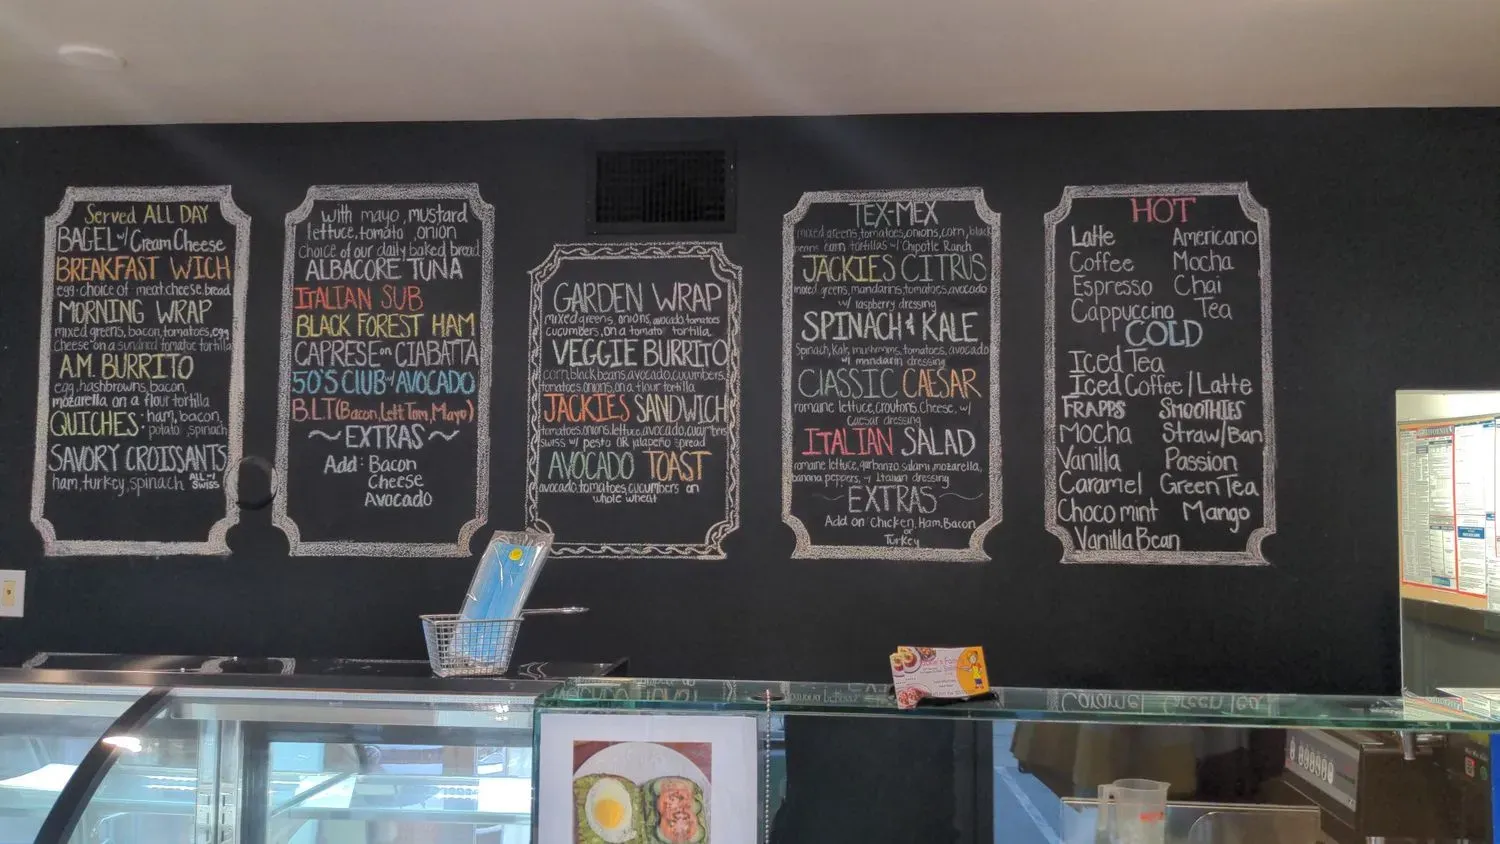 Served ALL DAY
BAGEL w/ Cream Cheese
BREAKFAST WICH
egg choice of meat, cheese, bread
MORNING WRAP
mixed greens, bacon, tomatoes, egg
cheese on a sundried tomatoe tortilla
A.M. BURRITO
egg, hashbrowns, bacon,
mozarella, on a flour tortilla
QUICHES: ham, bacon,
potato, spinach
SAVORY CROISSANTS
ham, turkey, spinach ALL w/ SWISS
with mayo, mustard
lettuce, tomato, onion
choice of our daily baked bread
ALBACORE TUNA
ITALIAN SUB
BLACK FOREST HAM
CAPRESE on CIABATTA
50'S CLUB w/ AVOCADO
B.L.T (Bacon, Lett Tom, Mayo)
~EXTRAS~
Add: Bacon
Cheese
Avocado
GARDEN WRAP
mixed greens, onions, avocado, tomatoes
cucumbers, on a tomato tortilla
VEGGIE BURRITO
corn, black beans, avocado, cucumbers,
tomatoes, onions, on a flour tortilla
JACKIES SANDWICH
tomatoes, onions, lettuce, avocado, cucumbers
swiss w/ pesto OR jalapeño spread
AVOCADO TOAST
avocado, tomatoes, cucumbers on
whole wheat
TEX-MEX
mixed greens, tomatoes, onions, corn, black
beans, corn tortillas w/ Chipotle Ranch
JACKIES CITRUS
mixed greens, mandarins, tomatoes, avocado
w/ raspberry dressing
SPINACH & KALE
Spinach, Kale, mushrooms, tomatoes, avocado
w/ mandarin dressing
CLASSIC CAESAR
romaine lettuce, croutons, cheese, w/
Caesar dressing
ITALIAN SALAD
romaine lettuce, garbonzo, salami, mozarella,
banana peppers, w/ Italian dressing
~EXTRAS~
Add on: Chicken, Ham, Bacon
or
Turkey
HOT
Latte Americano
Coffee Mocha
Espresso Chai
Cappuccino Tea
COLD
Iced Tea
Iced Coffee/Latte
FRAPPS SMOOTHIES
Mocha Straw/Ban
Vanilla Passion
Caramel Green Tea
Choco mint Mango
Vanilla Bean